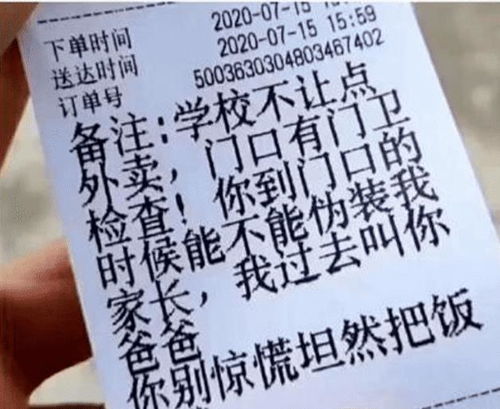 下单时间 2020-07-15
送达时间 2020-07-15 15:59
订单号 5003630304803467402
备注:学校不让点
外卖,门口有门卫
检查!你到门口的
时候能不能伪装我
家长,我过去叫你
爸爸
你别惊慌坦然把饭